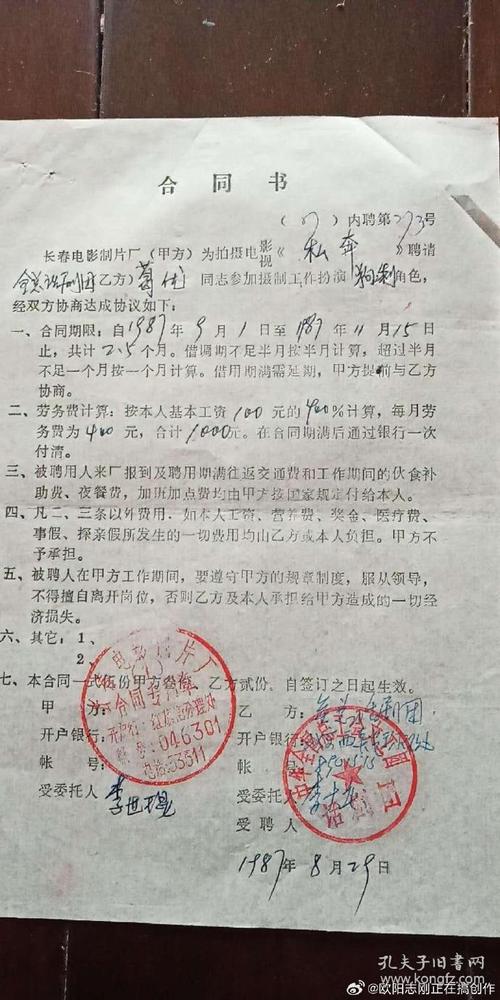 合同书
(87)内聘第273号
长春电影制片厂(甲方)为拍摄电影视《私奔》聘请
全总话剧团(乙方)葛优同志参加摄制工作扮演狗剩角色，
经双方协商达成协议如下：
一、合同期限：自1987年9月1日至1987年11月15日
止，共计2.5个月。借调期不足半月按半月计算，超过半月
不足一个月按一个月计算。借用期满需延期，甲方提前与乙方
协商。
二、劳务费计算：按本人基本工资100元的400%计算，每月劳
务费为400元，合计1000元。在合同期满后通过银行一次
付清。
三、被聘用人来厂报到及聘用期满往返交通费和工作期间的伙食补
助费、夜餐费，加班加点费均由甲方按国家规定付给本人。
四、凡二、三条以外费用，如本人工资、营养费、奖金、医疗费、
事假、探亲假所发生的一切费用均由乙方或本人负担。甲方不
予承担。
五、被聘人在甲方工作期间，要遵守甲方的规章制度，服从领导，
不得擅自离开岗位，否则乙方及本人承担给甲方造成的一切经
济损失。
六、其它：1、
2、
七、本合同一式伍份甲方叁份，乙方贰份，自签订之日起生效。
甲方：
开户银行：
帐号：
受委托人
电影制片厂
合同专用章
开户行：红旗街办理处
帐号：046301
电话：53311
乙方：全总话剧团
开户银行：
帐号：
受委托人
受聘人
中华全国总工会
话剧团
1987年8月29日
孔夫子旧书网
@欧阳志刚正在搞创作